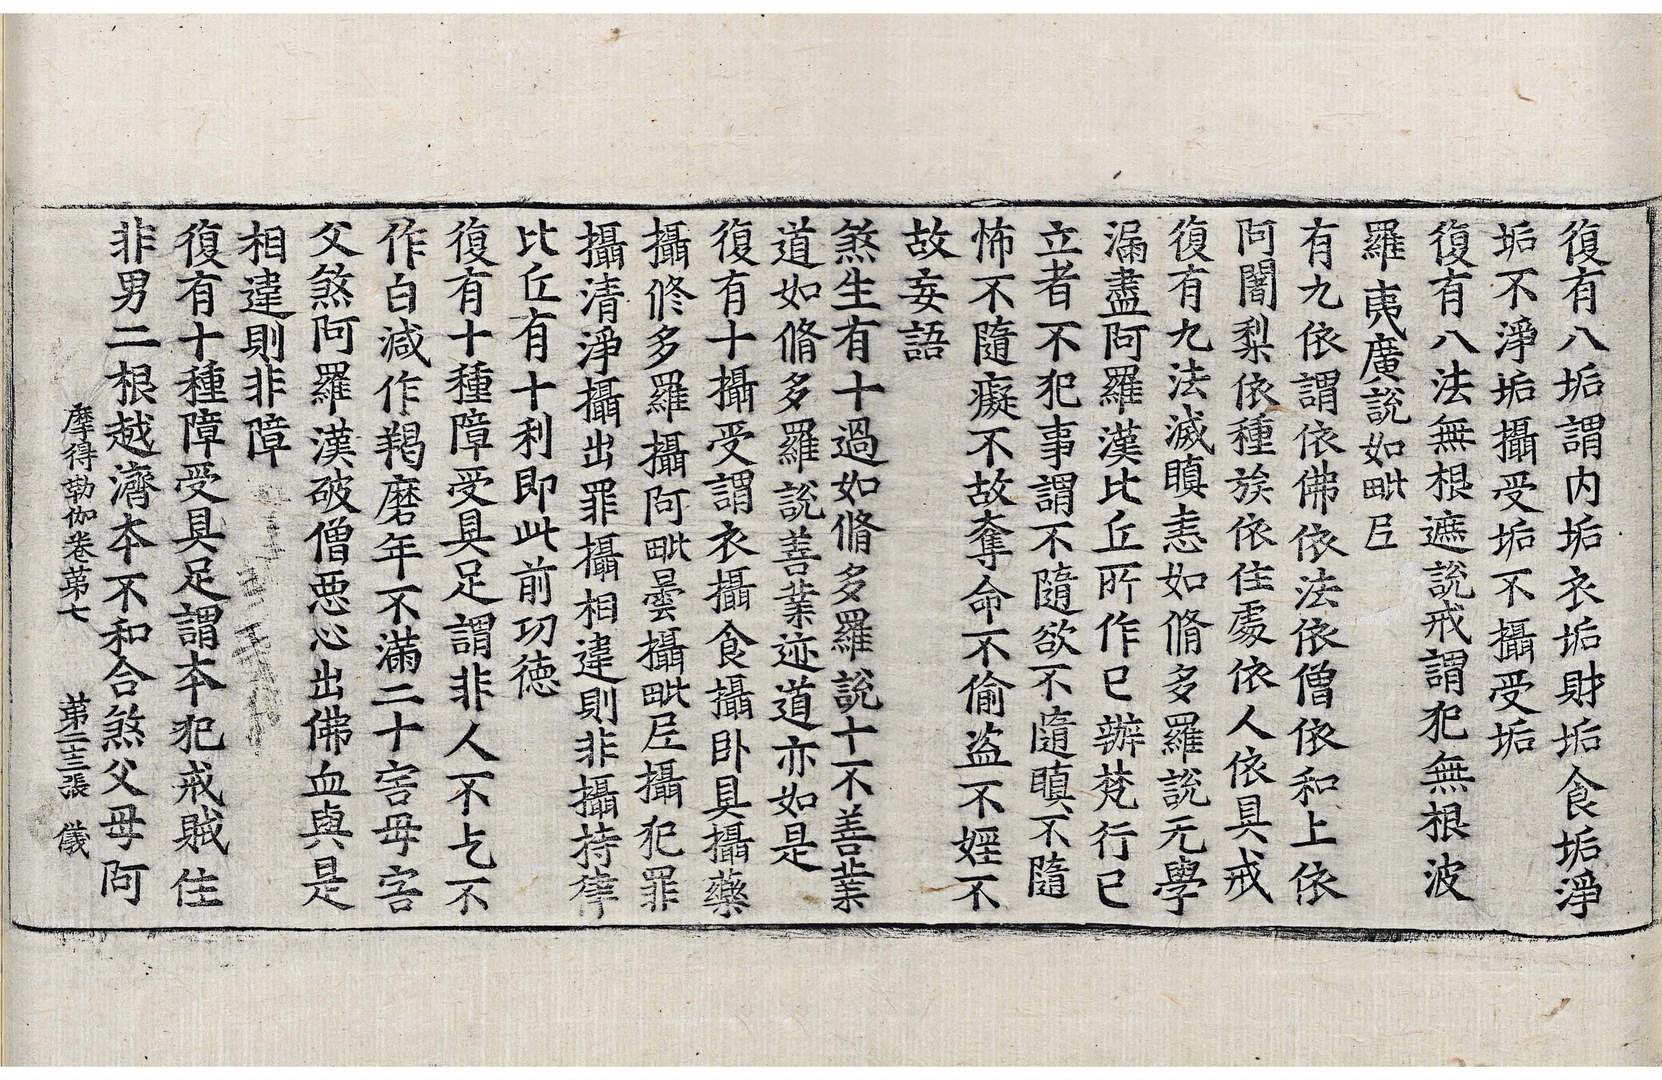 復有八垢謂内垢衣垢財垢食垢淨
垢不淨垢攝受垢不攝受垢
復有八法無根遮說戒謂犯無根波
羅夷廣說如毗尼
有九依謂依佛依法依僧依和上依
阿闍梨依種族依住處依人依具戒
復有九法滅瞋恚如脩多羅說无學
漏盡阿羅漢比丘所作已辦梵行已
立者不犯事謂不隨欲不隨瞋不隨
怖不隨癡不故奪命不偷盗不婬不
故妄語
煞生有十過如脩多羅說十不善業
道如脩多羅說善業迹道亦如是
復有十攝受謂衣攝食攝卧具攝藥
攝修多羅攝阿毗曇攝毗尼攝犯罪
攝清淨攝出罪攝相違則非攝持律
比丘有十利即此前功德
復有十種障受具足謂非人不乞不
作白減作羯磨年不滿二十害母害
父煞阿羅漢破僧惡心出佛血與是
相違則非障
復有十種障受具足謂本犯戒賊住
非男二根越濟本不和合煞父母阿
摩得勒伽卷第七　第二十三張　儀